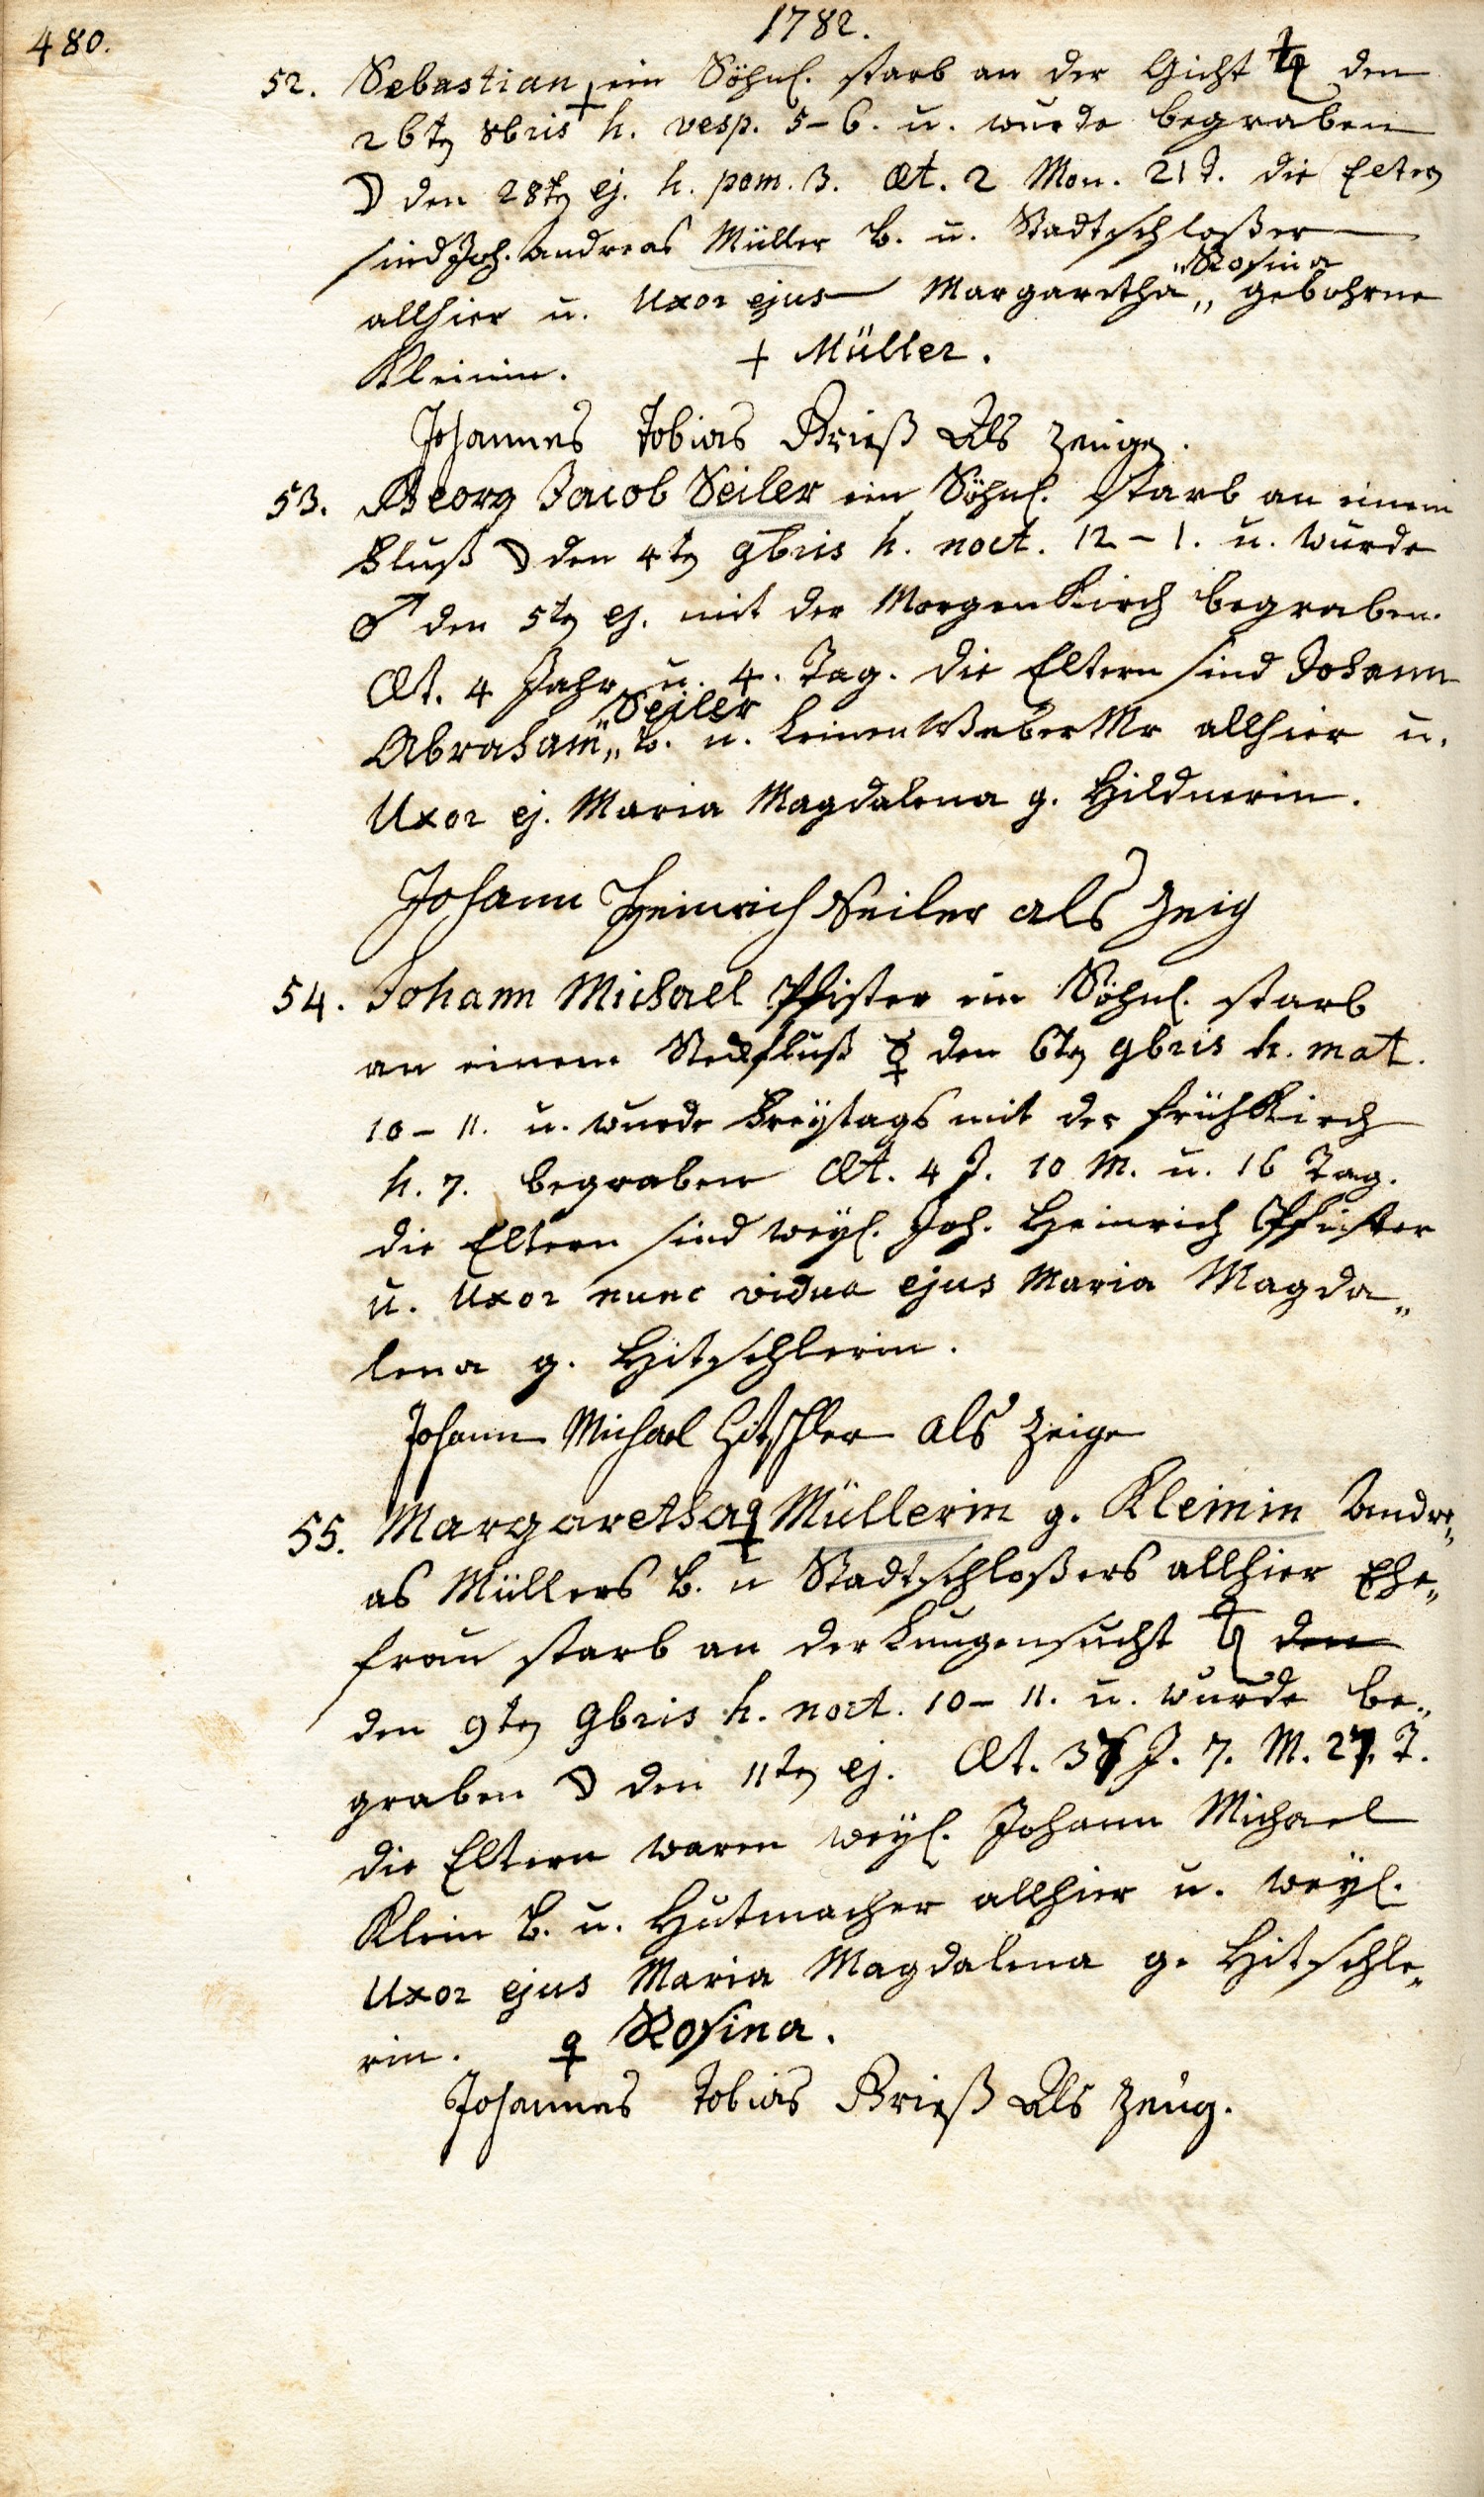 480.
1782.
52. Sebastian + ein Söhnl. starb an der Gicht ♄ den
26ten 8bris h. vesp. 5-6. u. wurde begraben
☽ den 28ten ej. h. pom. 3. Æt. 2 Mon. 21 T. die Eltern
sind Joh. Andreas Müller B. u. Stadtschloßer
allhier u. Uxor ejus Margaretha „Rosina„ gebohrne
Kleinin. + Müller.
Johannes Tobias Brieß Als zeuge.
53. Georg Jacob Seiler ein Söhnl. starb an einem
Fluß ☽ den 4ten 9bris h. noct. 12-1. u. wurde
♂ den 5ten ej. mit der MorgenKirch begraben.
Æt. 4 Jahr u. 4. Tag. die Eltern sind Johann
Abraham „Seiler„ B. u. LeinenWeberMr allhier u.
Uxor ej. Maria Magdalena g. Hildnerin.
Johann Heinrich Seiler als Zeig
54. Johann Michael Pfister ein Söhnl. starb
an einem Stekfluß ☿ den 6ten 9bris h. mat.
10-11. u. wurde Freytags mit der frühKirch
h. 7. begraben Æt. 4 J. 10 M. u. 16 Tag.
die Eltern sind weyl. Joh. Heinrich Pfister
u. Uxor nunc vidua ejus Maria Magda„
lena g. Hitschlerin.
Johann Michael Hitschler als Zeige
55. Margaretha ♀ Müllerin g. Kleinin Andre„
as Müllers B. u Stadtschloßers allhier Ehe„
frau starb an der Lungensucht ♄ den
den 9ten 9bris h. noct. 10-11. u. wurde be„
graben ☽ den 11ten ej. Æt. 38 J. 7. M. 27. T.
die Eltern waren weyl. Johann Michael
Klein B. u. Hutmacher allhier u. weyl.
Uxor ejus Maria Magdalena g. Hitschle„
rin. ♀ Rosina.
Johannes Tobias Brieß Als Zeug.